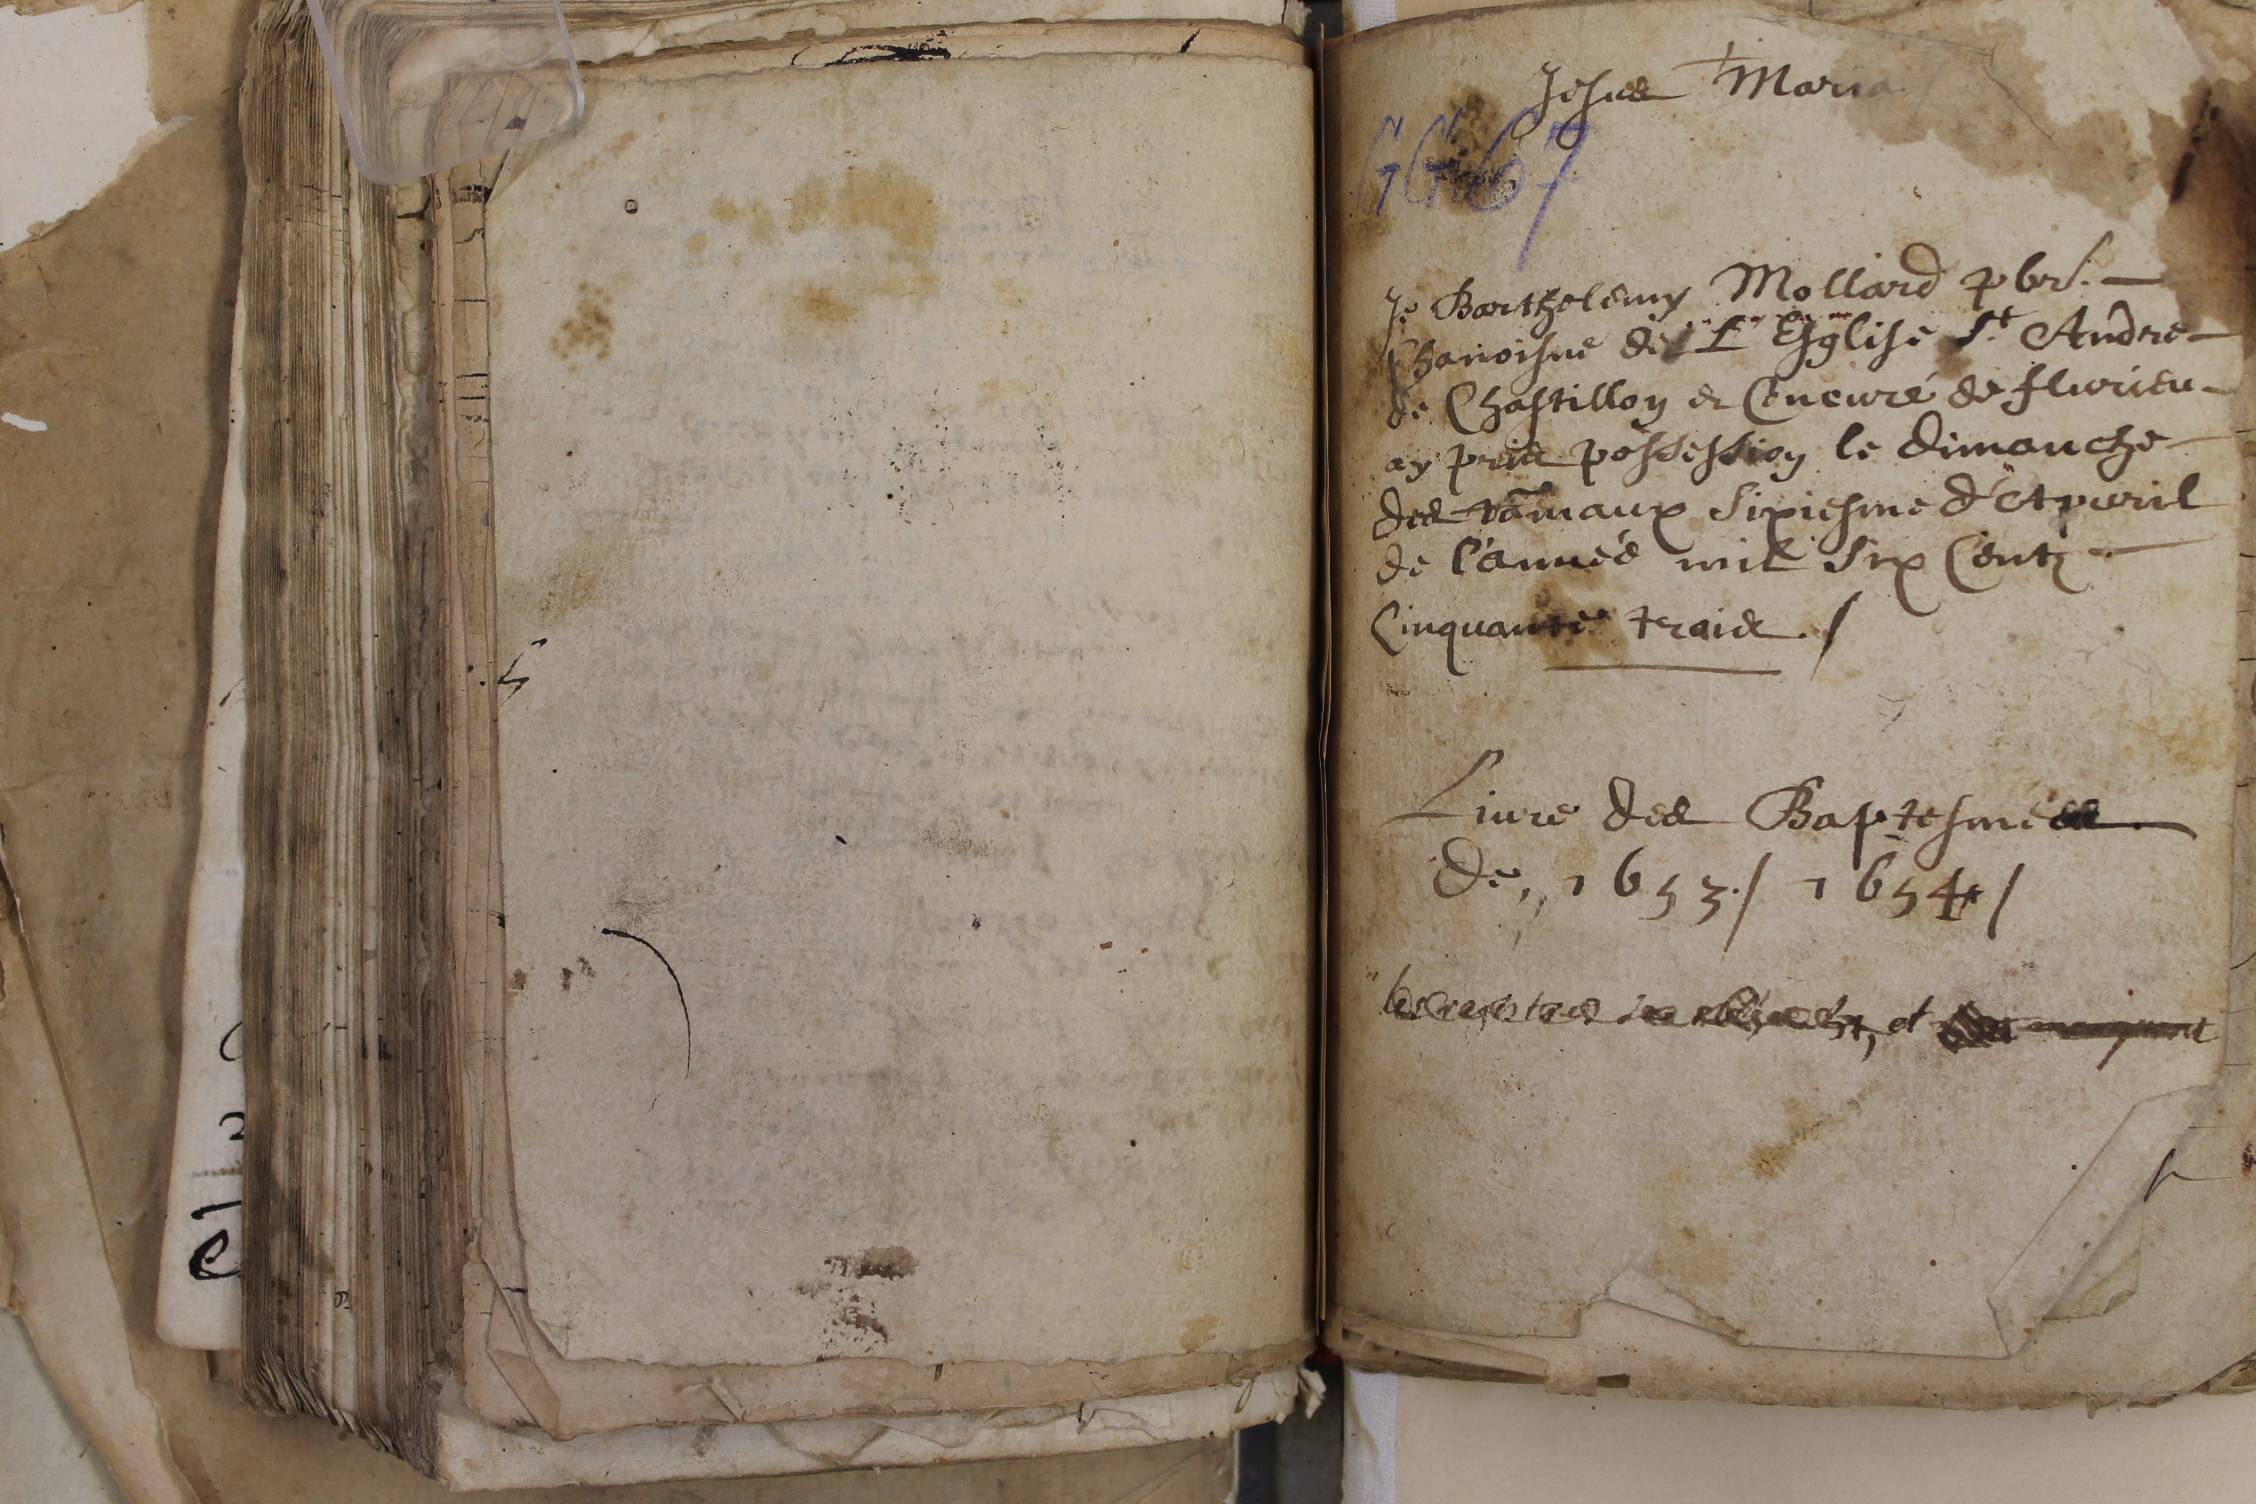 Jesus Maria
GG 67
Je Barthelemy Mollard pbr.
Chanoisne de L'Esglise St Andre
de Chastillon et Cu curé de flurieu
ay pris possession le dimanche
des ramaux sixiesme d'Apuril
de l'année mil six Centz
Cinquante trois ./
Liure des Baptesmes
De, 1653./ 1654 /
et